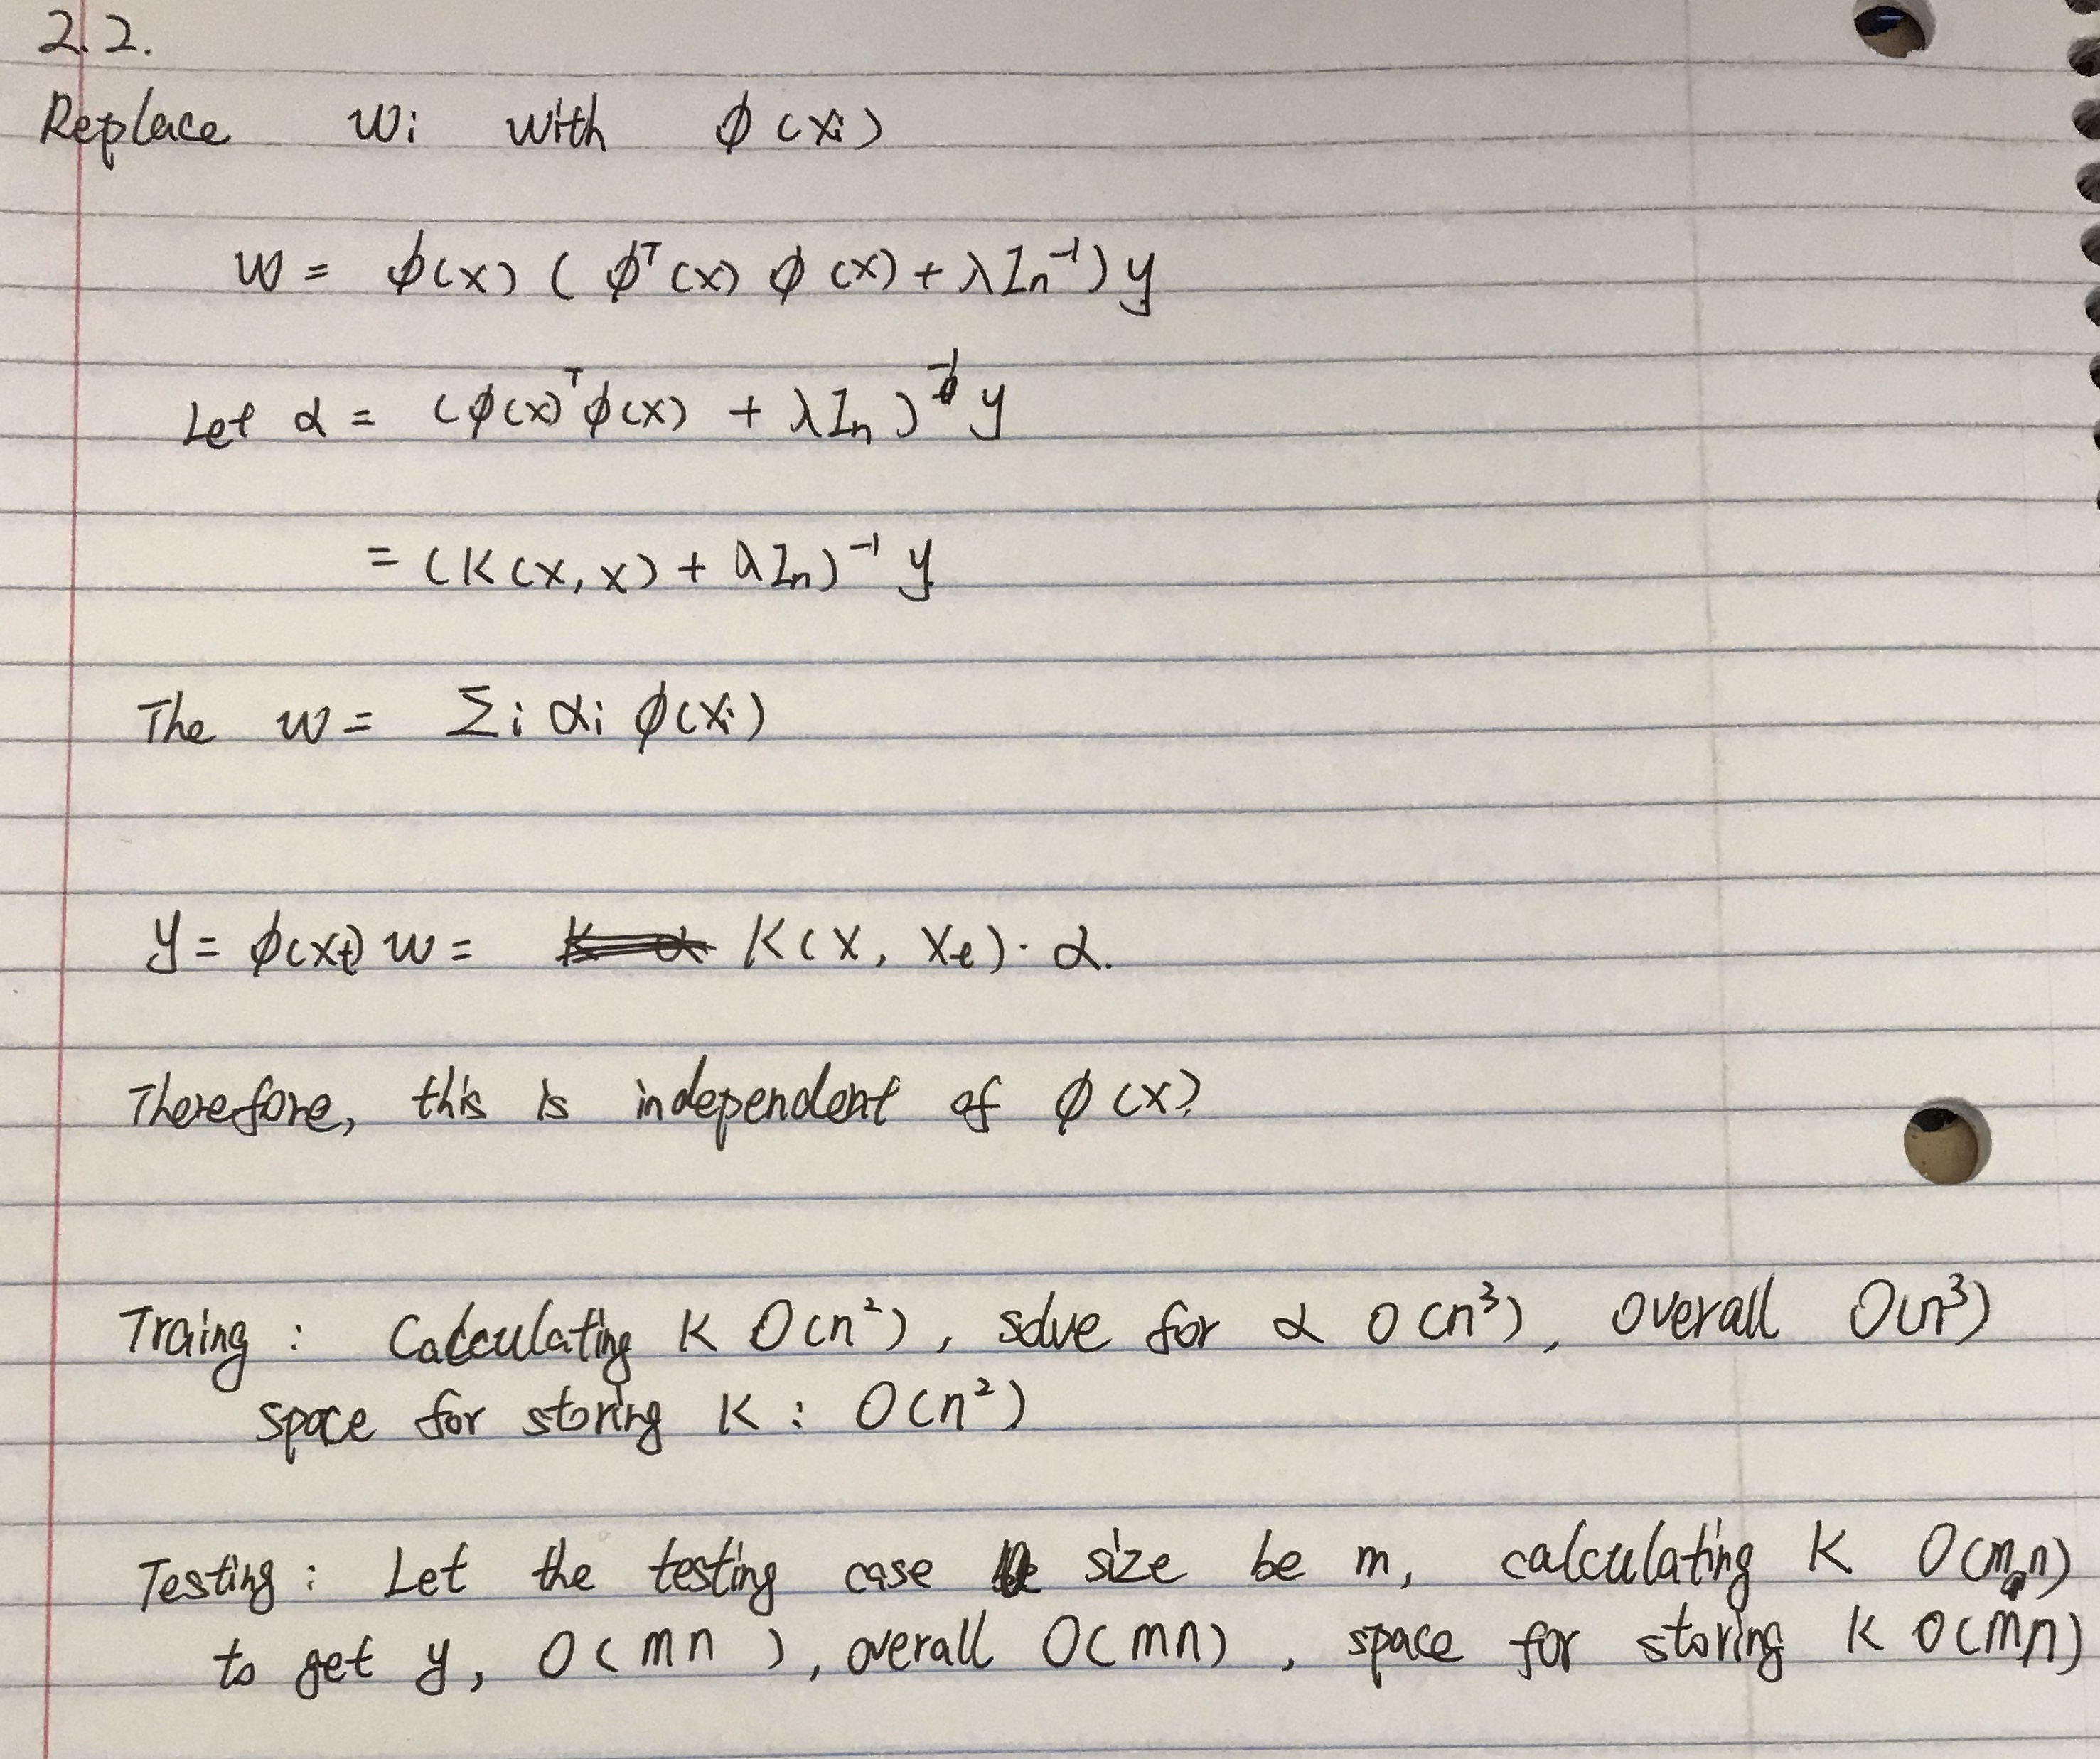 2.2.
Replace wi with ϕ(xi)
w = ϕ(x) ( ϕᵀ(x) ϕ(x) + λIn⁻¹) y
Let α = (ϕ(x)ᵀϕ(x) + λIn)⁻¹ y
= (K(x, x) + λIn)⁻¹ y
The w = Σi αi ϕ(xi)
y = ϕ(xt) w = K(x, xt)·α.
Therefore, this is independent of ϕ(x).
Traing : Calculating K O(n²), solve for α O(n³), overall O(n³)
space for storing K : O(n²)
Testing : Let the testing case size be m, calculating K O(mn)
to get y, O(mn), overall O(mn), space for storing K O(mn)